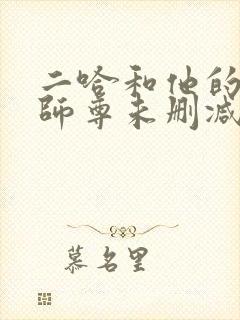 二哈和他的
師尊未删减
慕名里